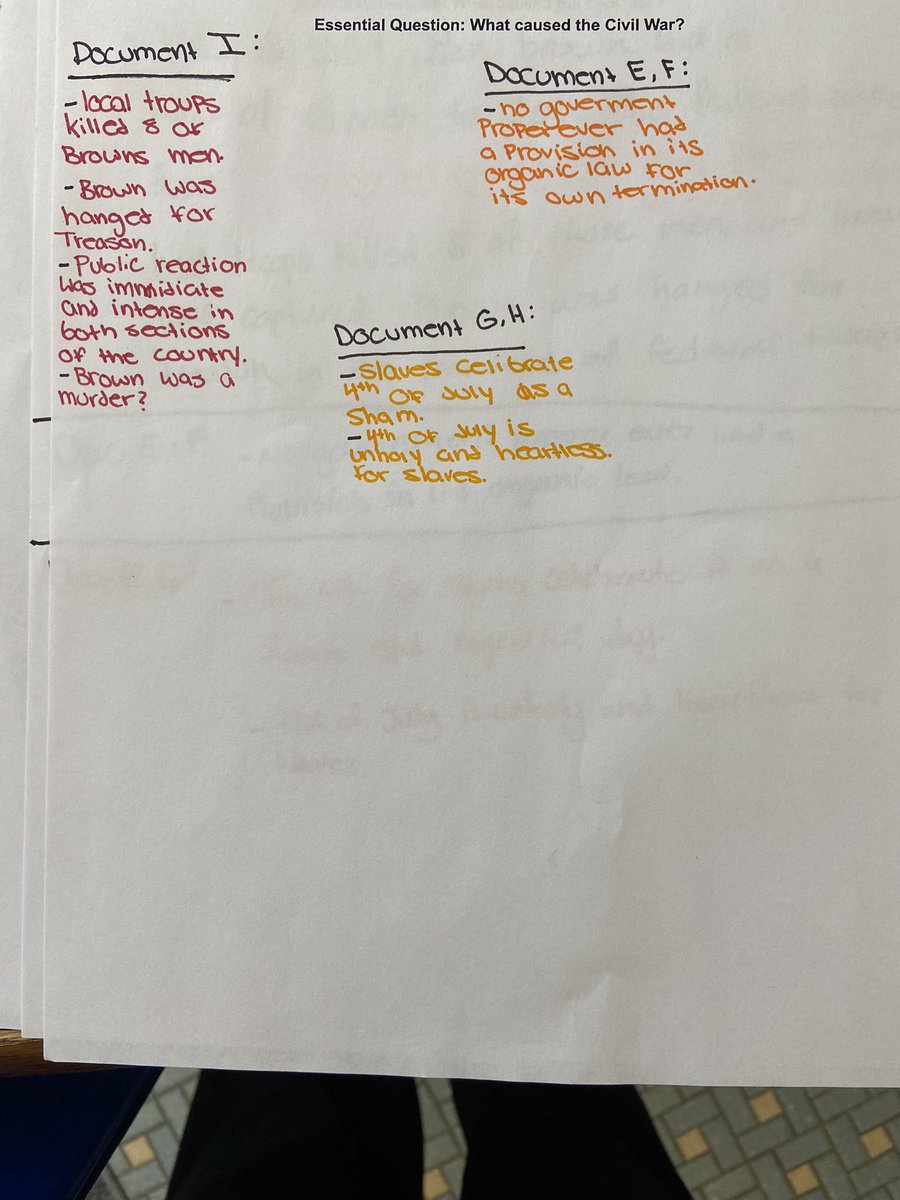 Essential Question: What caused the Civil War?
Document I:
-local troups
killed 8 of
Browns men.
-Brown was
hanged for
Treason.
-Public reaction
was immidiate
and intense in
both sections
of the country.
-Brown was a
murder?
Document E,F:
-no goverment
Proper ever had
a Provision in its
organic law for
its own termination.
Document G,H:
-Slaves celibrate
4th of July as a
Sham.
-4th of July is
unholy and heartless.
for slaves.